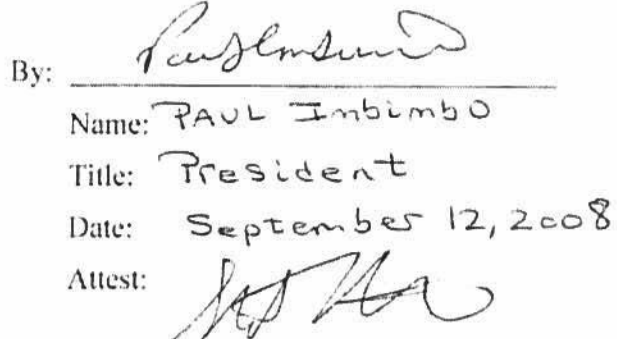 By:
Name: PAUL Imbimbo
Title: President
Date: September 12, 2008
Attest: